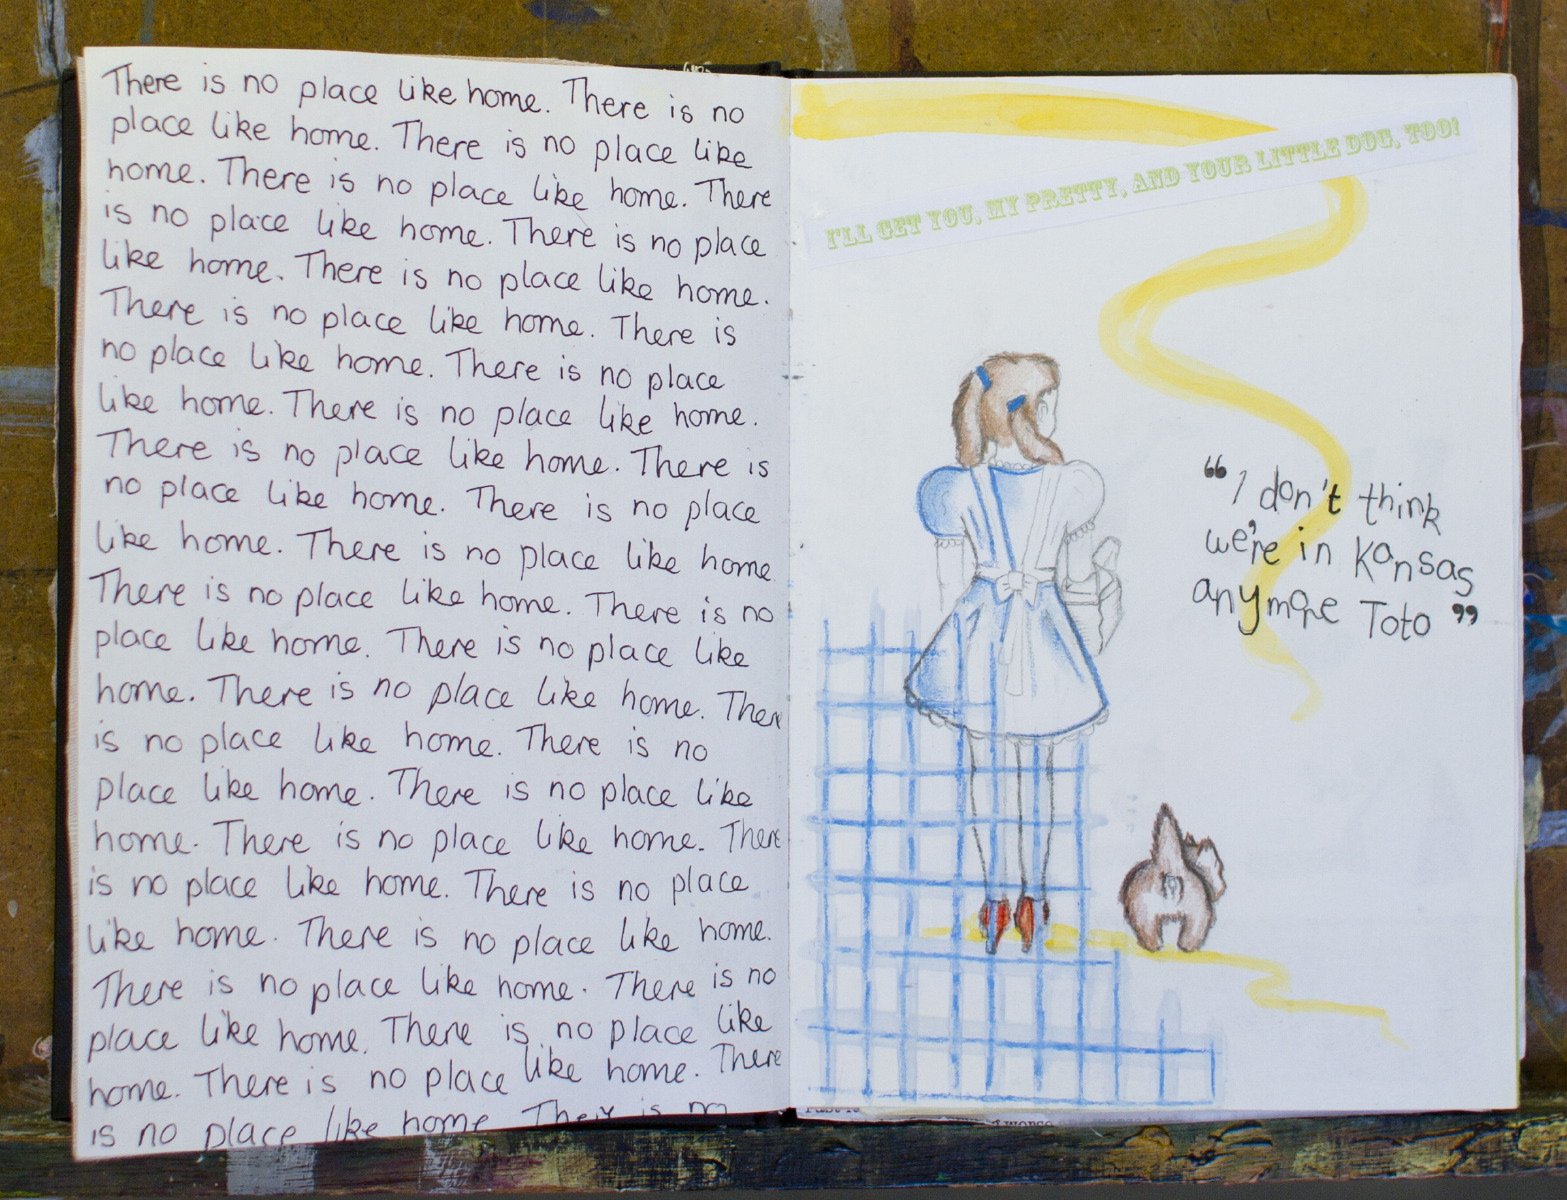 There is no place like home. There is no
place like home. There is no place like
home. There is no place like home. There
is no place like home. There is no place
like home. There is no place like home.
There is no place like home. There is
no place like home. There is no place
like home. There is no place like home.
There is no place like home. There is
no place like home. There is no place
like home. There is no place like home
There is no place like home. There is no
place like home. There is no place like
home. There is no place like home. There
is no place like home. There is no
place like home. There is no place like
home. There is no place like home. There
is no place like home. There is no place
like home. There is no place like home.
There is no place like home. There is no
place like home. There is no place like
home. There is no place like home. There
is no place like home There is no
I'LL GET YOU, MY PRETTY, AND YOUR LITTLE DOG, TOO!
“I don't think
we're in Kansas
anymore Toto”